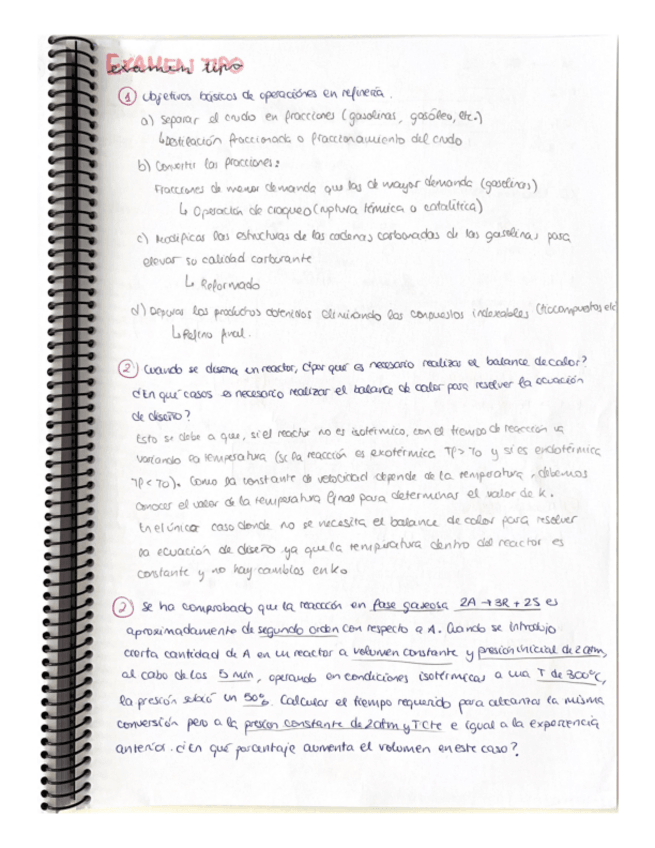 EXAMEN TIPO
examen tipo
① Objetivos básicos de operaciones en refinería.
a) Separar el crudo en fracciones (gasolinas, gasóleo, etc.)
↳ Destilación fraccionada o fraccionamiento del crudo
b) Convertir las fracciones:
Fracciones de menor demanda que las de mayor demanda (gasolinas)
↳ Operación de craqueo (ruptura térmica o catalítica)
c) Modificas las estructuras de las cadenas carbonadas de las gasolinas para
elevar su calidad carburante
↳ Reformado
d) Depurar los productos obtenidos eliminando los compuestos indeseables (tiocompuestos etc
↳ Refino final.
② Cuando se diseña un reactor, ¿por qué es necesario realizar el balance de calor?
¿En qué casos es necesario realizar el balance de calor para resolver la ecuación
de diseño?
Esto se debe a que, si el reactor no es isotérmico, con el tiempo de reacción va
variando la temperatura (si la reacción es exotérmica Tf > To y si es endotérmica
Tf < To). Como la constante de velocidad depende de la temperatura, debemos
conocer el valor de la temperatura final para determinar el valor de k.
En el único caso donde no se necesita el balance de calor para resolver
la ecuación de diseño ya que la temperatura dentro del reactor es
constante y no hay cambios en k.
② Se ha comprobado que la reacción en fase gaseosa 2A → 3R + 2S es
aproximadamente de segundo orden con respecto a A. Cuando se introdujo
cierta cantidad de A en un reactor a volumen constante y presión inicial de 2 atm,
al cabo de los 5 min, operando en condiciones isotérmicas a una T de 300ºC,
la presión subió un 50%. Calcular el tiempo requerido para alcanzar la misma
conversión pero a la presión constante de 2 atm y T CTE e igual a la experiencia
anterior. ¿En qué porcentaje aumenta el volumen en este caso?